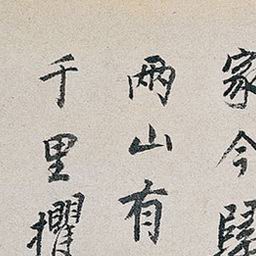 家今
兩山有
千里